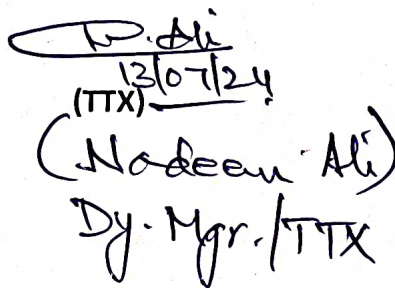 N. Ali
13/07/24
(TTX)
(Nadeem Ali)
Dy. Mgr./TTX